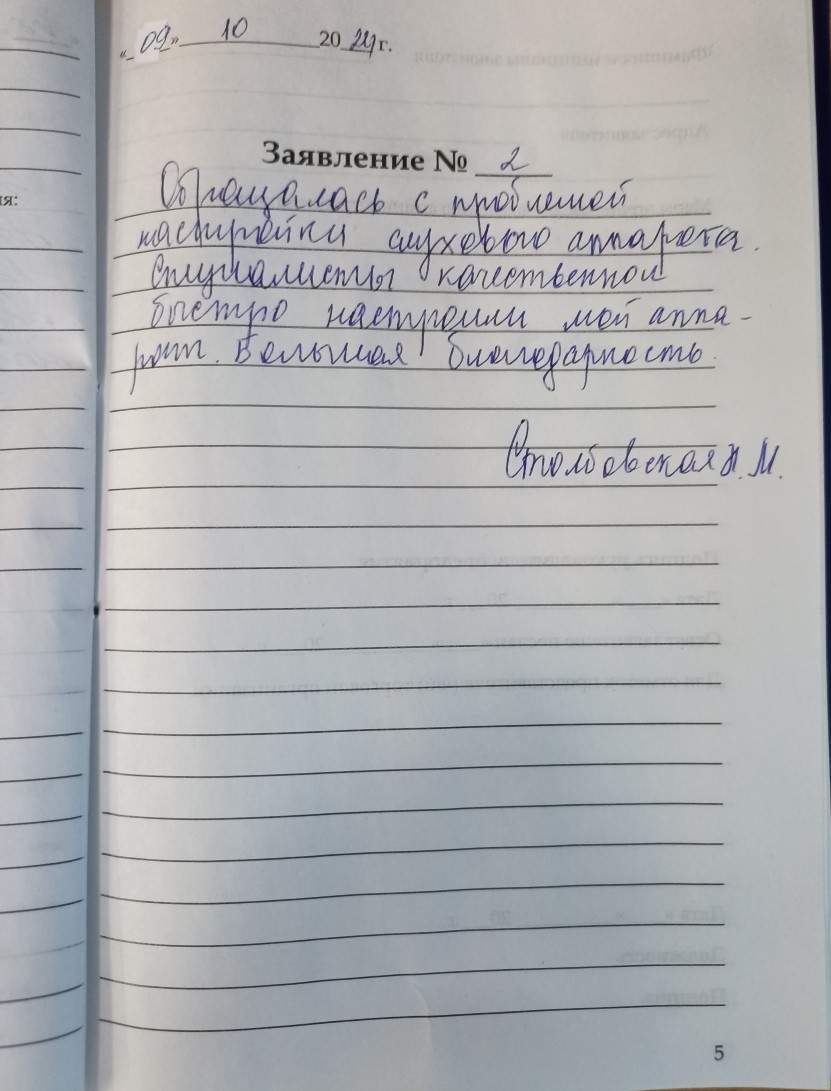 « 09 » 10 20 24 г.
Заявление № 2
Обращалась с проблемой
настройки слухового аппарата.
Специалисты качественно и
быстро настроили мой аппа-
рат. Большая благодарность.
Столбовская Н.М.
ия:
5